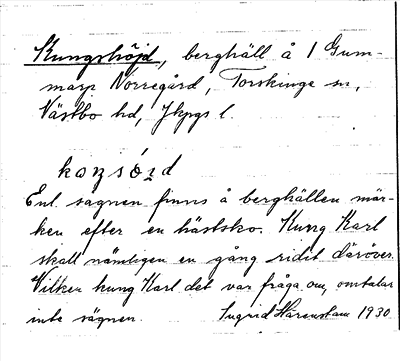 Kungshöjd, berghäll å 1 Gum-
marp Norregård, Torskinge sn,
Västbo hd, Jkpgs l.
koŋsɔ́ɪd
Enl. sagnen finns å berghällen mär-
ken efter en hästsko. Kung Karl
skall nämligen en gång ridit däröver.
Vilken kung Karl det var fråga om, omtalar
inte sägnen. Ingrid Härenstam 1930